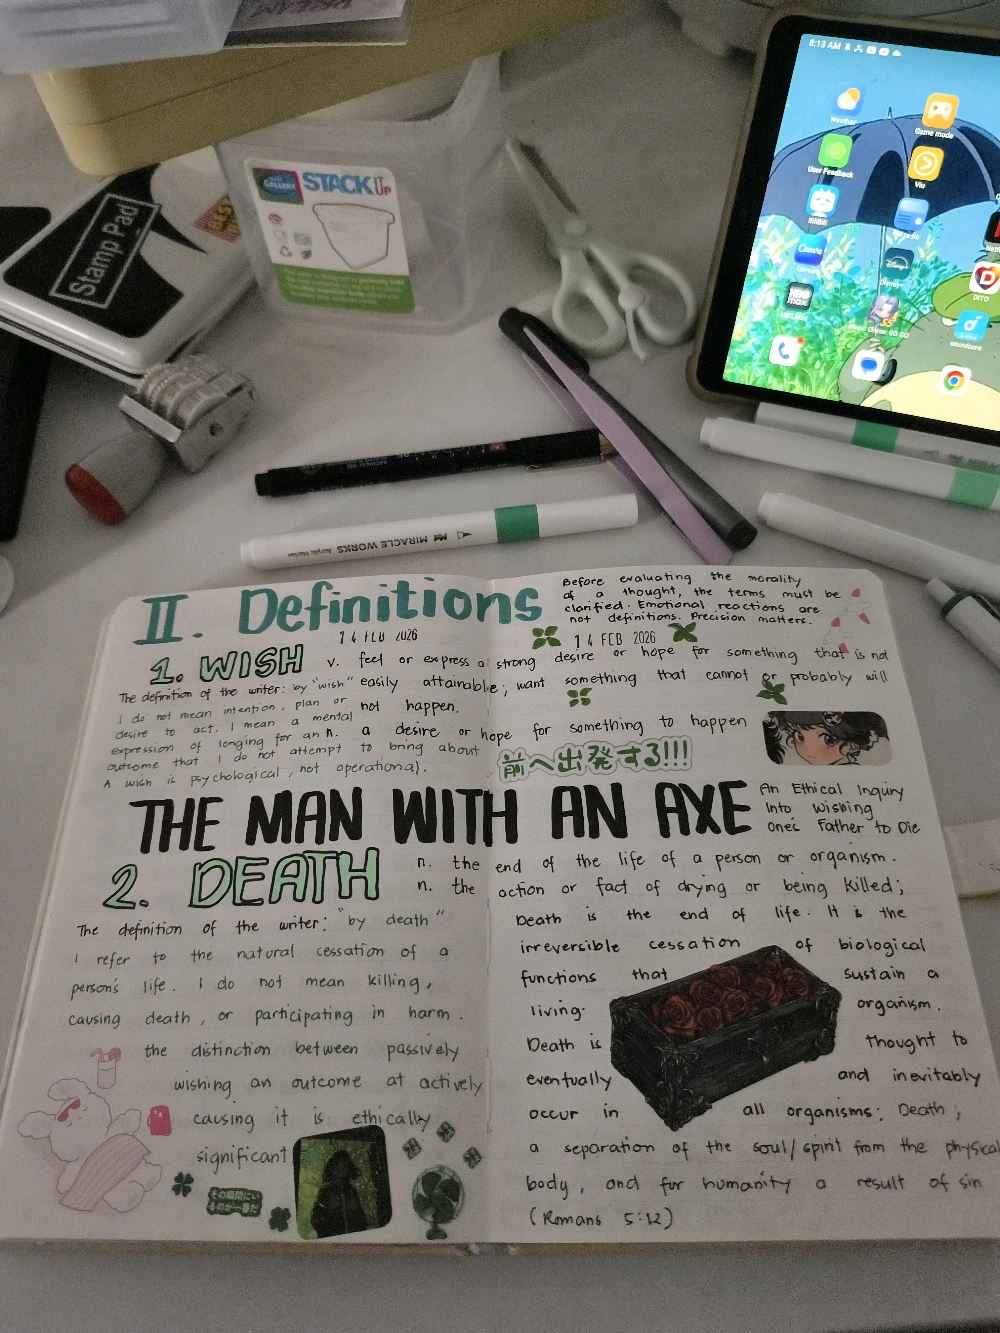 STACK IT UP
Stamp Pad
8:13 AM
Weather
Game mode
User Feedback
Viu
BiliBili
Canva
Disney+
HBO max
DITO
soundcore
MIRACLE WORKS Acrylic Marker
II. Definitions
Before evaluating the morality
of a thought, the terms must be
clarified. Emotional reactions are
not definitions. Precision matters.
14 FEB 2026
14 FEB 2026
1. WISH
v. feel or express a strong desire or hope for something that is not
easily attainable; want something that cannot or probably will
not happen.
n. a desire or hope for something to happen
The definition of the writer: by "wish"
I do not mean intention, plan or
desire to act. I mean a mental
expression of longing for an
outcome that I do not attempt to bring about
A wish is psychological, not operational.
前へ出発する!!!
THE MAN WITH AN AXE
An Ethical Inquiry
Into Wishing
One's Father to Die
2. DEATH
n. the end of the life of a person or organism.
n. the action or fact of drying or being killed;
The definition of the writer: "by death"
I refer to the natural cessation of a
person's life. I do not mean killing,
causing death, or participating in harm.
the distinction between passively
wishing an outcome at actively
causing it is ethically
significant
その瞬間にい
るのが一番だ
Death is the end of life. It is the
irreversible cessation of biological
functions that sustain a
living organism.
Death is thought to
eventually and inevitably
occur in all organisms; Death;
a separation of the soul/spirit from the physical
body, and for humanity a result of sin
(Romans 5:12)